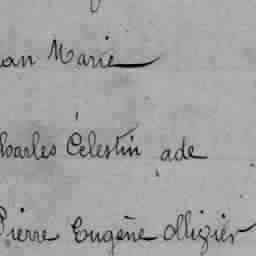 an Marie
harles Célestin ade
Pierre Eugène Ollivier